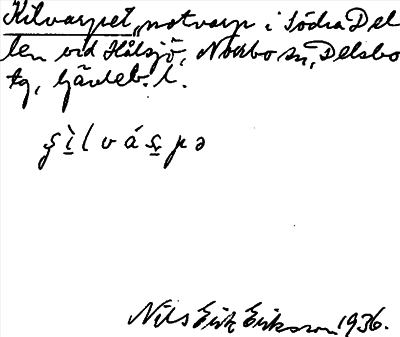 Kilvarpet, notvarp i Södra Del
len vid Hålsjö, Norrbo sn, Delsbo
tg, Gävleb. l.
Nils Erik Eriksson 1936.